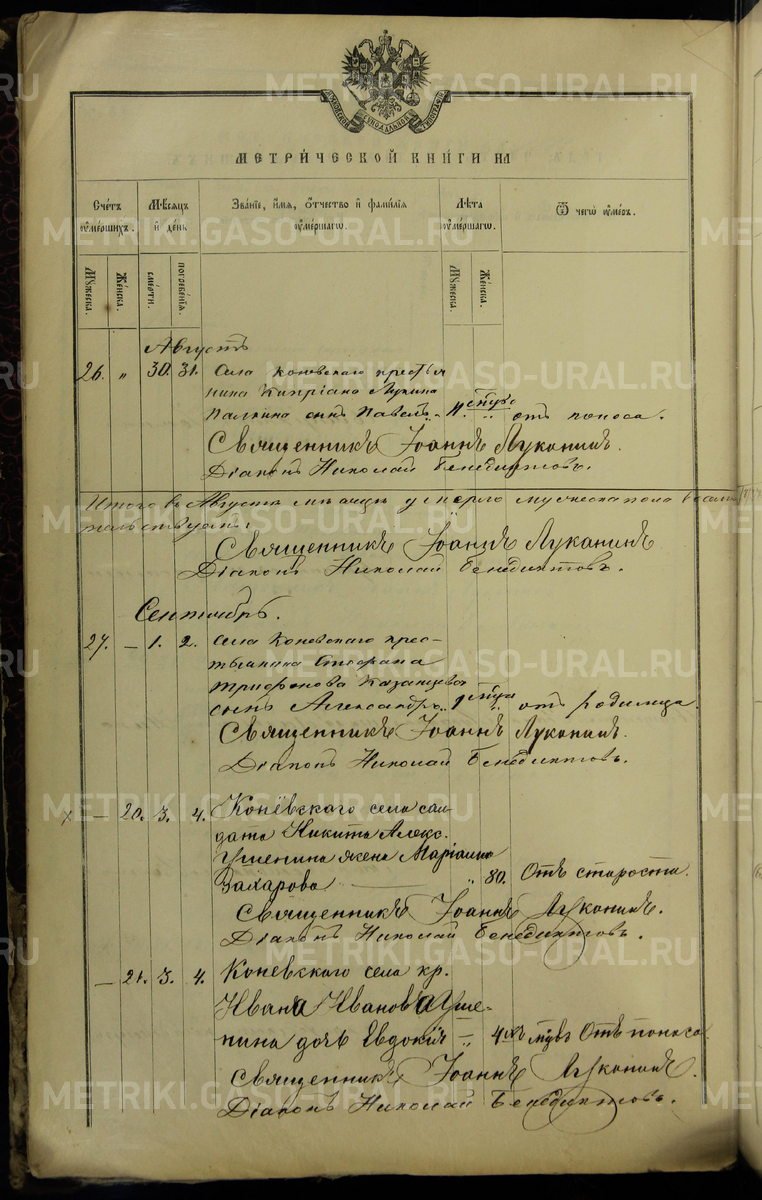 МЕТРИЧЕСКОЙ КНИГИ НА
Счетъ умершихъ.
Мѣсяцъ и день
Званіе, имя, отчество и фамилія умершаго.
Лѣта умершаго.
Ѿ чего умеръ.
Мужеска.
Женска.
смерти.
погребенія.
Мужеска.
Женска.
Августъ
26. „ 30. 31. Села Коневскаго кресть
янина Кипріана Лукина
Палкина сынъ Павелъ 11. „ отъ поноса.
Священникъ Іоаннъ Луканинъ.
Діаконъ Николай Бенедиктовъ.
Итого въ Августѣ мѣсяцѣ умерло мужеска пола
Священникъ Іоаннъ Луканинъ
Діаконъ Николай Бенедиктовъ.
Сентябрь.
27. – 1. 2. Села Коневскаго крес-
тьянина Стефана
Трифонова Казанцева
сынъ Александръ „ отъ родимца.
Священникъ Іоаннъ Луканинъ.
Діаконъ Николай Бенедиктовъ.
х – 20. 3. 4. Коневскаго села сол-
дата Никиты Алекс.
Ушенина жена Маріамна
Захарова „ 80. Отъ старости.
Священникъ Іоаннъ Луканинъ.
Діаконъ Николай Бенедиктовъ.
– 21. 3. 4. Коневскаго села кр.
Ивана Иванова Уше-
нина дочь Евдокія – „ 4хъ Отъ поноса.
Священникъ Іоаннъ Луканинъ.
Діаконъ Николай Бенедиктовъ.
METRIKI.GASO-URAL.RU